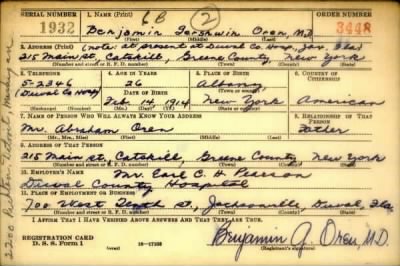 SERIAL NUMBER 1. NAME (Print) 6B (2) ORDER NUMBER
1932 Benjamin Gershwin Oren, M.D. 3448
(First) (Middle) (Last)
2. ADDRESS (Print) (note: at present at Duval Co. Hosp., Jax., Fla)
215 Main st., Catskill, Greene County, New York
(Number and street or R. F. D. number) (Town) (County) (State)
3. TELEPHONE 4. AGE IN YEARS 5. PLACE OF BIRTH 6. COUNTRY OF CITIZENSHIP
5-2346 26 Albany
DATE OF BIRTH
(Duval Co Hosp) Feb. 14, 1914 New York American
(Exchange) (Number) (Mo.) (Day) (Yr.) (State or country)
7. NAME OF PERSON WHO WILL ALWAYS KNOW YOUR ADDRESS 8. RELATIONSHIP OF THAT PERSON
Mr. Abraham Oren Father
(Mr., Mrs., Miss) (First) (Middle) (Last)
9. ADDRESS OF THAT PERSON
215 Main st., Catskill, Greene County, New York
(Number and street or R. F. D. number) (Town) (County) (State)
10. EMPLOYER'S NAME Mr. Earl C. H. Pearson
Duval County Hospital
11. PLACE OF EMPLOYMENT OR BUSINESS
700 West Tenth st., Jacksonville, Duval, Fla.
(Number and street or R. F. D. number) (Town) (County) (State)
I AFFIRM THAT I HAVE VERIFIED ABOVE ANSWERS AND THAT THEY ARE TRUE.
REGISTRATION CARD
D. S. S. Form 1 16-17105 Benjamin G. Oren, M.D.
(Registrant's signature)
2200 Detroit, Michigan